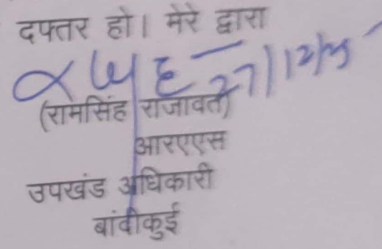 दफ्तर हो। मेरे द्वारा
27/12/25
(रामसिंह राजावत)
आरएएस
उपखंड अधिकारी
बांदीकुई